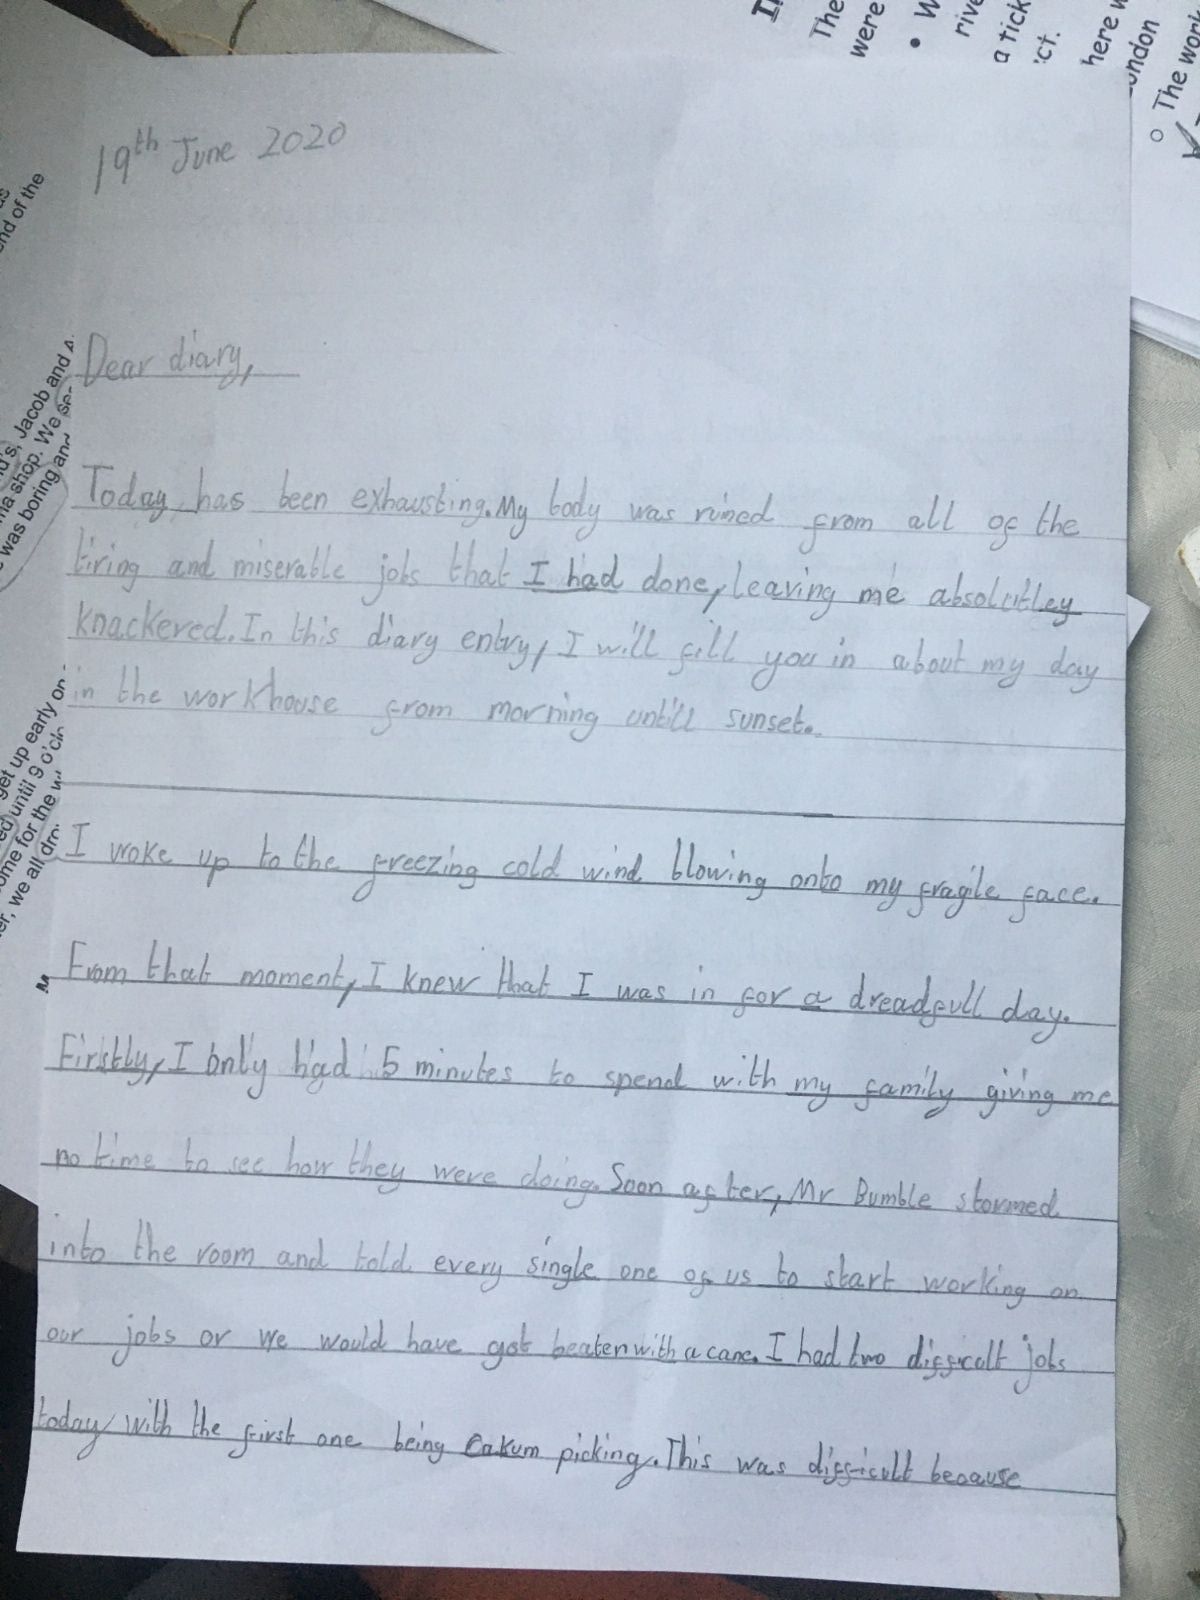 19th June 2020
Dear diary,
Today has been exhausting. My body was ruined from all of the
tiring and miserable jobs that I had done, leaving me absolutley
knackered. In this diary entry, I will fill you in about my day
in the workhouse from morning untill sunset.
I woke up to the freezing cold wind blowing onto my fragile face.
From that moment, I knew that I was in for a dreadfull day.
Firstly, I only had 5 minutes to spend with my family giving me
no time to see how they were doing. Soon after, Mr Bumble stormed
into the room and told every single one of us to start working on
our jobs or we would have got beaten with a cane. I had two difficult jobs
today with the first one being Oakum picking. This was difficult because
The
were
• W
rive
a tick
'ct.
here w
ondon
○ The work
end of the
d's, Jacob and
ma shop. We
was boring and
get up early on
ed until 9 o'clo
ome for the w
er, we all dro